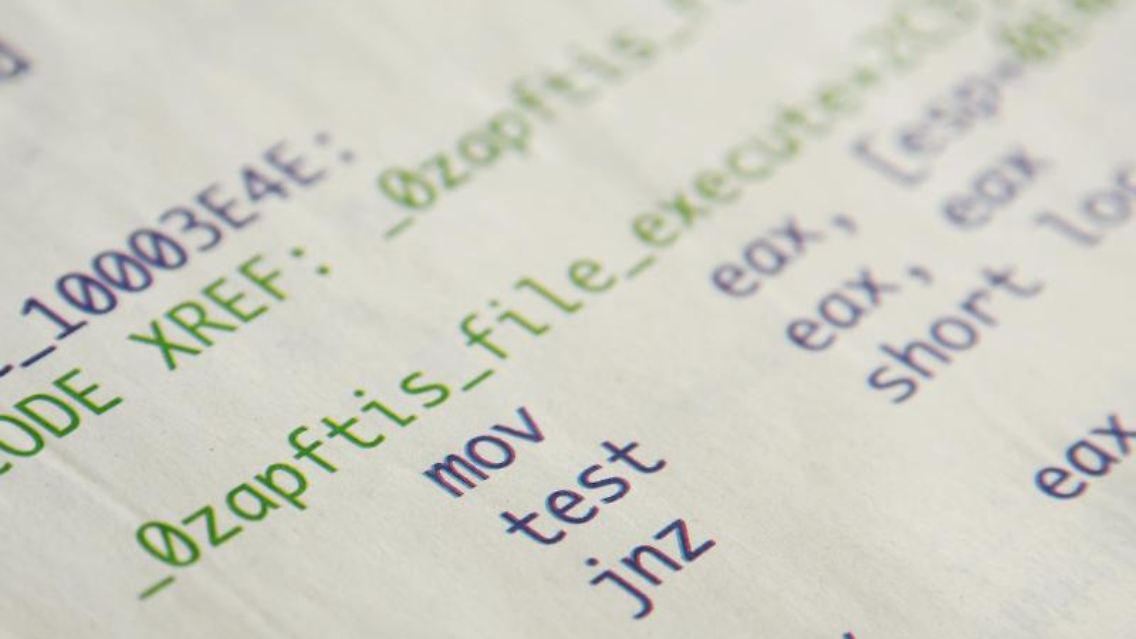 _10003E4E:
CODE XREF: _0zapftis_
_0zapftis_file_execute+2C
mov eax, [esp+
test eax, eax
jnz short loc
eax